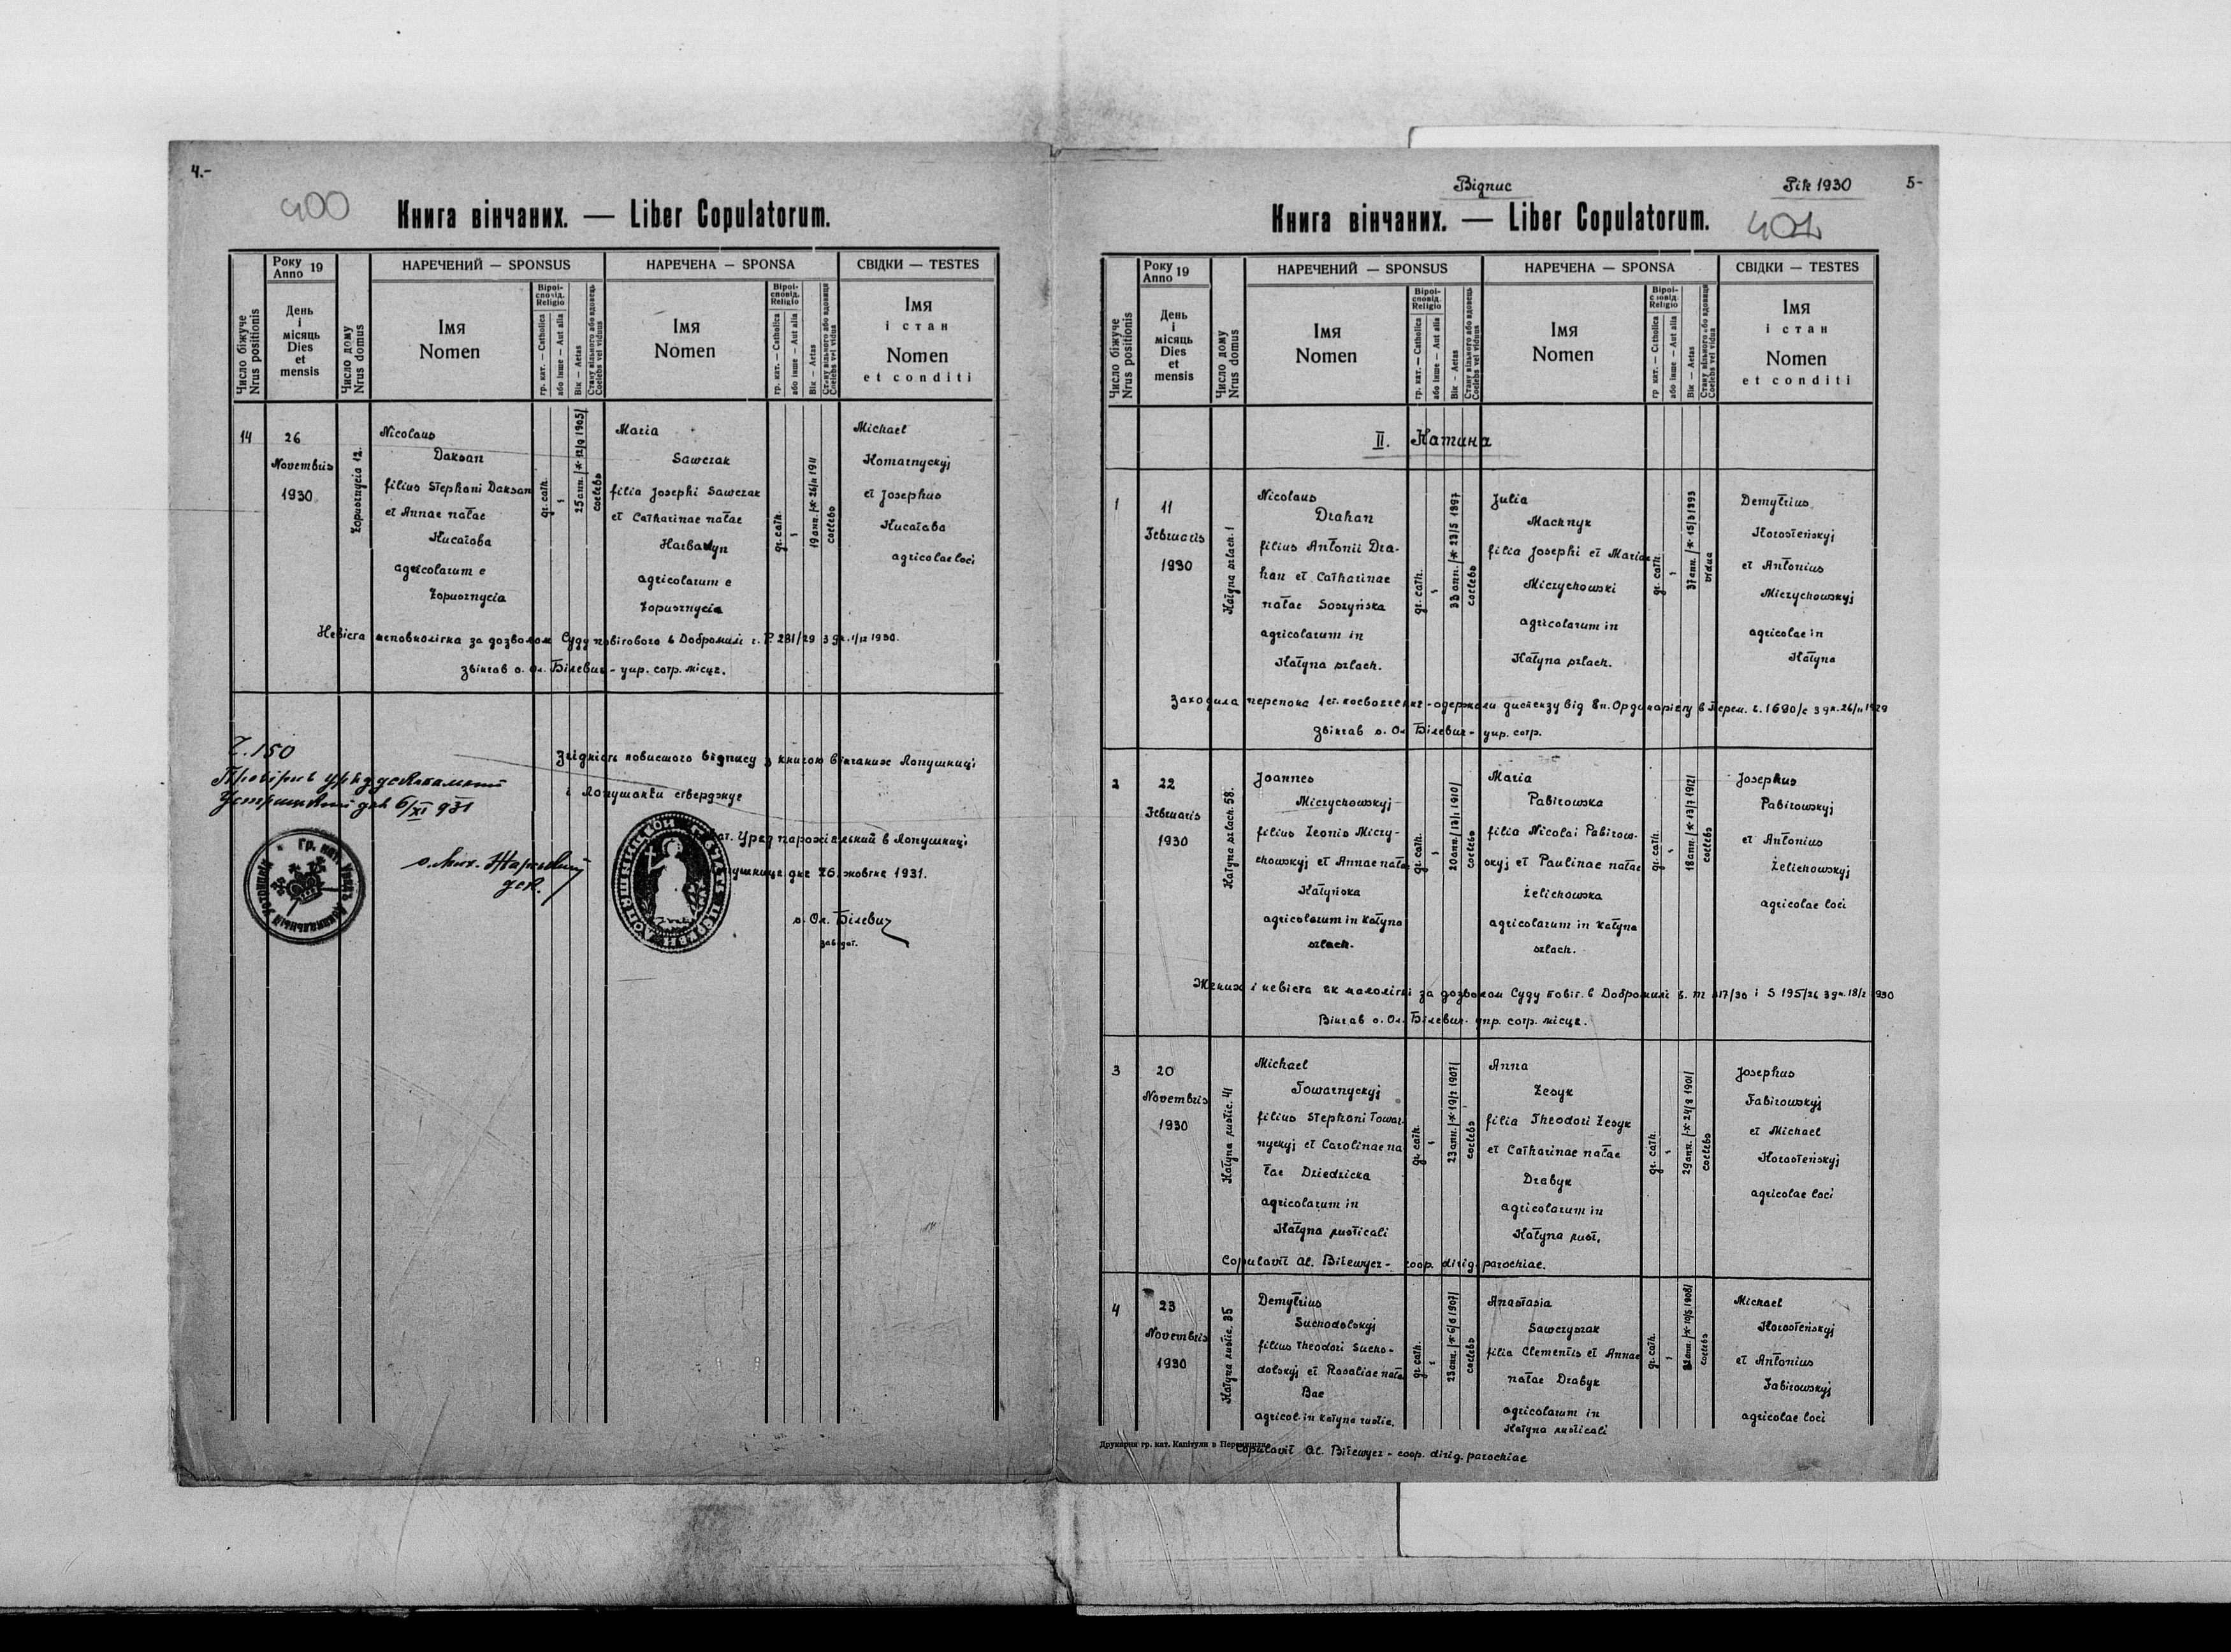 4.-
400
Книга вінчаних. — Liber Copulatorum.
Число біжуче
Nrus positionis
Року
Anno 19
День
і
місяць
Dies
et
mensis
Число дому
Nrus domus
НАРЕЧЕНИЙ — SPONSUS
Імя
Nomen
Віроі-
сповід.
Religio
гр. кат. — Catholica
або інше — Aut alia
Вік — Aetas
Стану вільного або вдовець
Coelebs vel viduus
НАРЕЧЕНА — SPONSA
Імя
Nomen
Віроі-
сповід.
Religio
гр. кат. — Catholica
або інше — Aut alia
Вік — Aetas
Стану вільного або вдовиця
Coelebs vel vidua
СВІДКИ — TESTES
Імя
і стан
Nomen
et conditi
14
26
Novembris
1930
Łopusznycia 12.
Nicolaus
Daksan
filius Stephani Daksan
et Annae natae
agricolarum e
Łopusznycia
gr. cath.
25 ann. /* 12/9 1905/
coelebs
Maria
Sawczak
filia Josephi Sawczak
et Catharinae natae
agricolarum e
Łopusznycia
gr. cath.
coelebs
Michael
Komarnyckyj
et Josephus
agricolae loci
Невіста неповнолітна за дозволом Суду повітового в Добромилі
звінчав о. Ол. Білевич - упр. сотр. місце.
Ч. 150
6/XI 931
Згідність повисшого відпису з книгою вінчаних Лопушниці
і Лопушанки стверджує
Уряд парохіяльний в Лопушниці
дня 26. жовтня 1931.
о. Ол. Білевич
завідат.
Відпис
Рік 1930
5-
401
Книга вінчаних. — Liber Copulatorum.
Число біжуче
Nrus positionis
Року
Anno 19
День
і
місяць
Dies
et
mensis
Число дому
Nrus domus
НАРЕЧЕНИЙ — SPONSUS
Імя
Nomen
Віроі-
сповід.
Religio
гр. кат. — Catholica
або інше — Aut alia
Вік — Aetas
Стану вільного або вдовець
Coelebs vel viduus
НАРЕЧЕНА — SPONSA
Імя
Nomen
Віроі-
сповід.
Religio
гр. кат. — Catholica
або інше — Aut alia
Вік — Aetas
Стану вільного або вдовиця
Coelebs vel vidua
СВІДКИ — TESTES
Імя
і стан
Nomen
et conditi
II. Катина
1
11
Februaris
1930
Katyna szlach. 1
Nicolaus
Drahan
filius Antonii Dra-
han et Catharinae
natae Soszyńska
agricolarum in
Katyna szlach.
gr. cath.
33 ann. /* 23/5 1897
coelebs
Julia
Machnyk
filia Josephi et Mariae
Miczychowski
agricolarum in
Katyna szlach.
gr. cath.
37 ann. /* 15/3 1893
vidua
Demytrius
Horosteńskyj
et Antonius
Miczychowskyj
agricolae in
Katyna
звінчав о. Ол. Білевич - упр. сотр.
2
22
Februaris
1930
Katyna szlach. 58.
Joannes
Miczychowskyj
filius Leonis Miczy-
chowskyj et Annae natae
Katyńska
agricolarum in Katyna
szlach.
gr. cath.
coelebs
Maria
Fabirowska
filia Nicolai Fabirow-
skyj et Paulinae natae
Żelichowska
agricolarum in Katyna
szlach.
gr. cath.
18 ann. /* 13/7 1912/
coelebs
Josephus
Fabirowskyj
et Antonius
Żelichowskyj
agricolae loci
Жених і невіста як малолітні за дозволом Суду повіт. в Добромилі
Вінчав о. Ол. Білевич - упр. сотр. місце.
3
20
Novembris
1930
Katyna rustic. 41
Michael
Towarnyckyj
filius Stephani Towar-
nyckyj et Carolinae na
tae Dziedzicka
agricolarum in
Katyna rusticali
gr. cath.
23 ann. /* 19/2 1907/
coelebs
Anna
Łesyk
filia Theodori Łesyk
et Catharinae natae
Drabyk
agricolarum in
Katyna rust.
gr. cath.
29 ann. /* 24/8 1901/
coelebs
Josephus
Fabirowskyj
et Michael
Horosteńskyj
agricolae loci
Copulavit Al. Biłewycz - coop. dirig. parochiae.
4
23
Novembris
1930
Katyna rustic. 35
Demytrius
Suchodolskyj
filius Theodori Sucho-
dolskyj et Rosaliae natae
Bae
agricol. in Katyna rustic.
gr. cath.
23 ann. /* 6/6 1907/
coelebs
Anastasia
Sawczyszak
filia Clementis et Annae
natae Drabyk
agricolarum in
Katyna rusticali
gr. cath.
coelebs
Michael
Horosteńskyj
et Antonius
Fabirowskyj
agricolae loci
Друкарня гр. кат. Капітули в Перемишлі.
Copulavit Al. Biłewycz - coop. dirig. parochiae